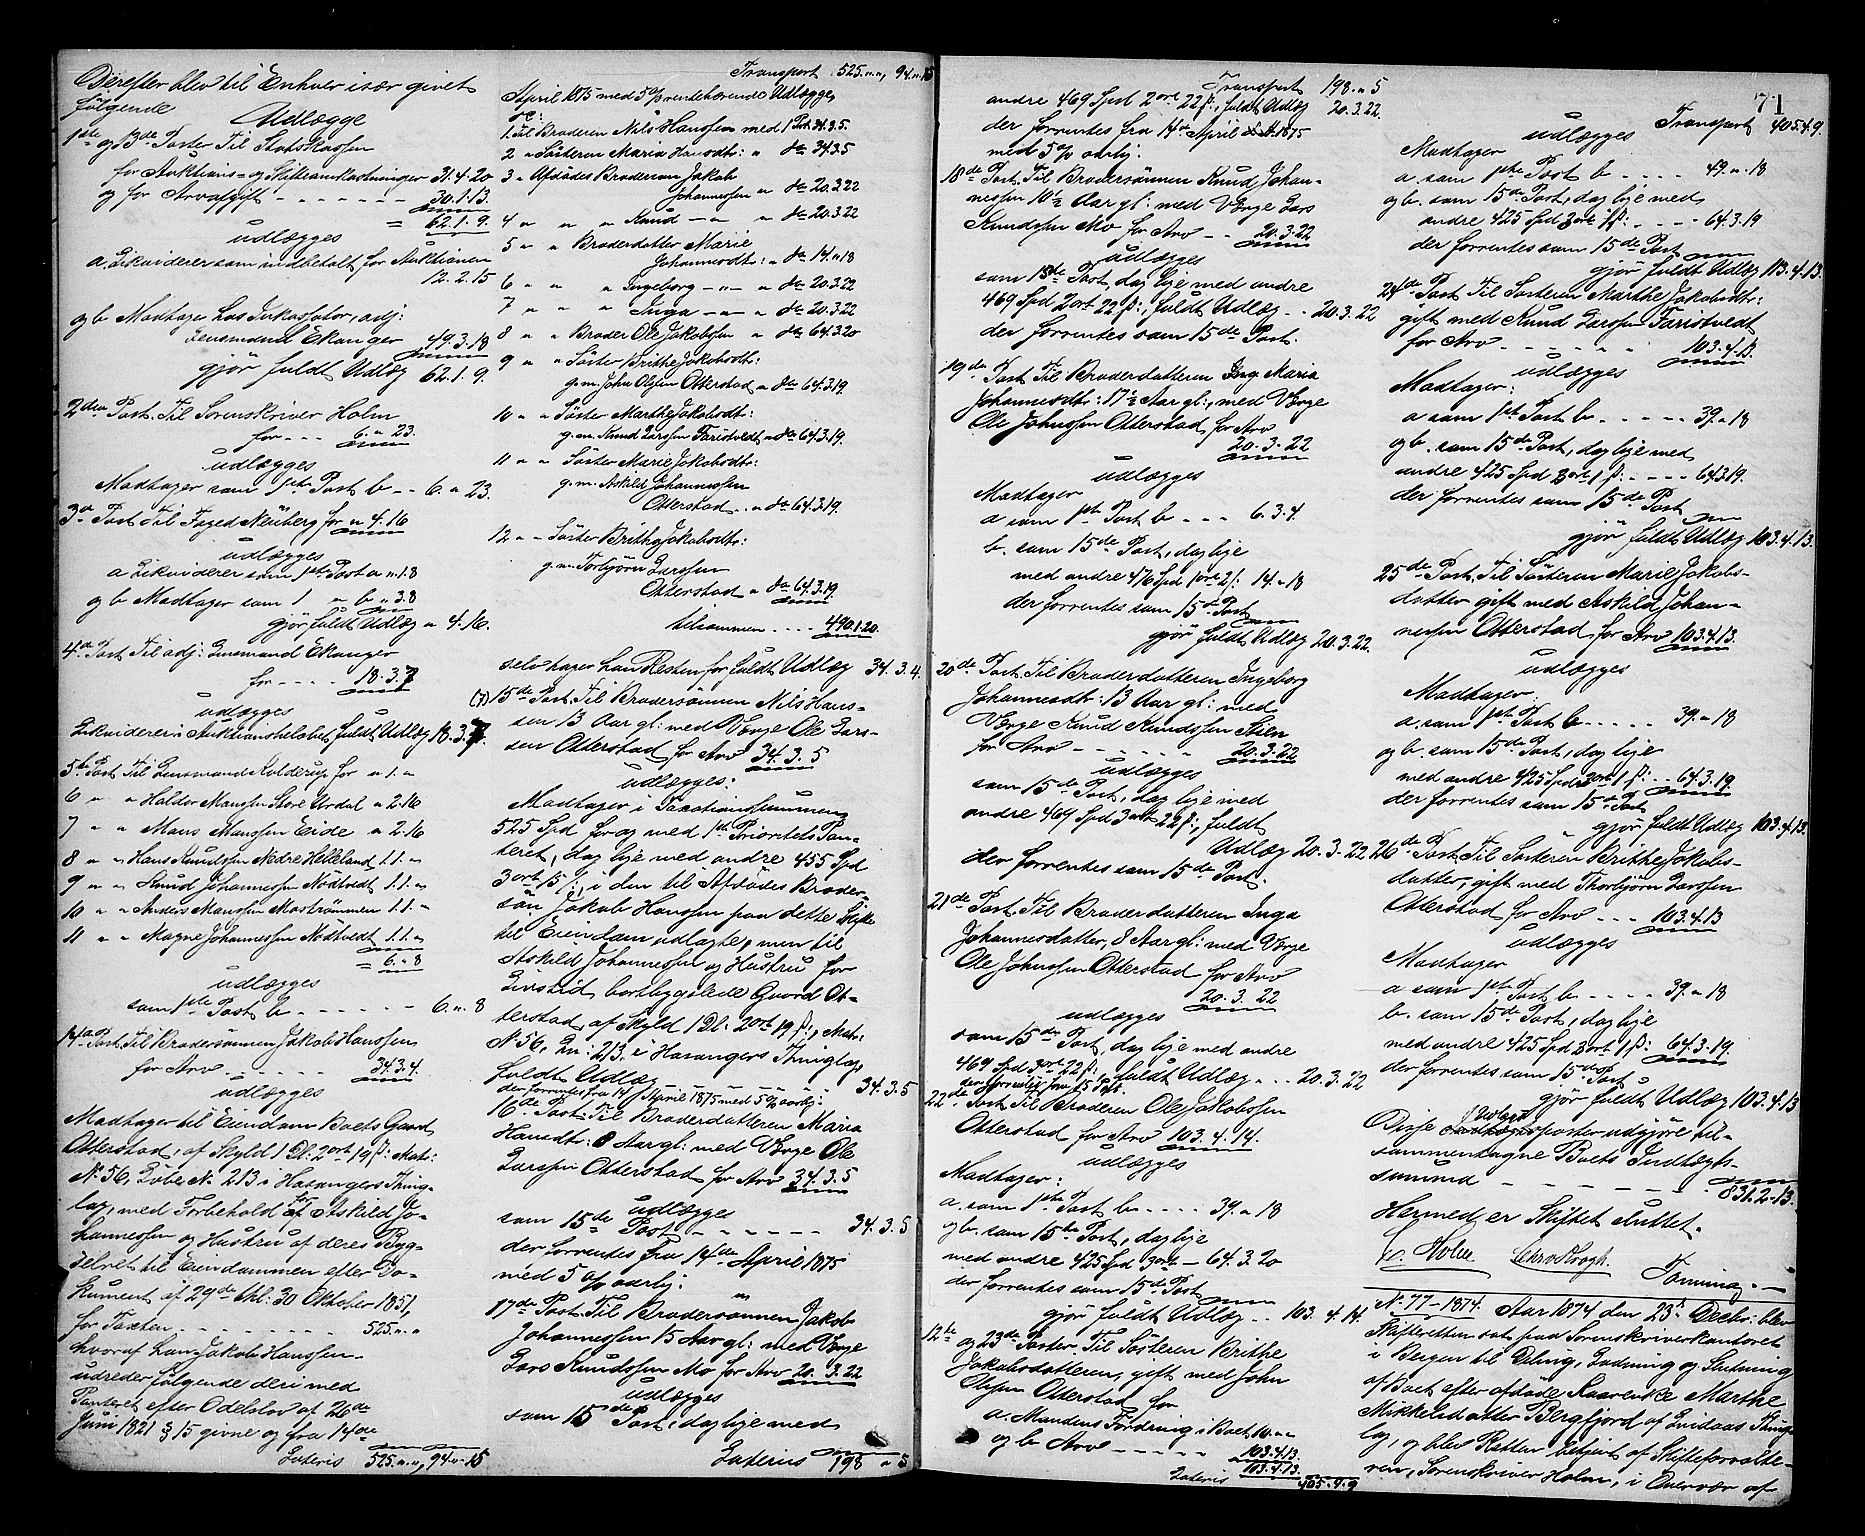 Derefter blev til Enhver især givet
følgende
Udlægge
1ste og 13de Poster Til Statskassen
for Auktions- og Skifteomkostninger 31.4.20
og for Arvafgift - - - - - - - 30.1.13.
= 62.1.9.
udlægges
a. Likviderer som indbetalt for Auktionen
12.2.15
og b. Modtager hos Inkassator, adj:
Lensmand Ekanger 49.3.18
gjör fuldt Udlæg 62.1.9.
2den Post. Til Sorenskriver Holm
for - - - 6. " 23.
udlægges
Modtager som 1ste Post b - - 6. " 23.
3die Post Til Foged Neuberg for " 4.16
udlægges
a Likviderer som 1ste Post a " 1.8
og b Modtager som 1 " b " 3.8
gjör fuldt Udlæg " 4.16.
4de Post Til adj: Lensmand Ekanger
for - - - - 18.3.7
udlægges
Likviderer i Auktionsbeløbet fuldt Udlæg 18.3.7.
5te Post Til Lensmand Kolderup for " 1. "
6 " " Haldor Monssen Store Urdal " 2.16
7 " " Mons Monssen Eide " 2.16
8 " " Hans Knudssen Nedre Helleland 1.1. "
9 " " Knud Johannessen Nödtvedt 1.1. "
10 " " Anders Monssen Moströmmen 1.1. "
11 " " Magne Johannessen Nödtvedt 1.1. "
= 6. " 8
udlægges
som 1ste Post b - - - - - - 6. " 8
14de Post Til Brodersönnen Jakob Hanssen
for Arv - - - - - 34.3.4.
udlægges
Modtager til Eiendom Boets Gaard
Otterstad, af Skyld 1 Dl: 2 ort 19 ß: Matr:
N. 56, Löbe N. 213 i Hosangers Thing-
lag, med Forbehold for Askild Jo-
hannessen og Hustru af deres Byg-
selret til Eiendommen efter Do-
kument af 29de thl: 30 Oktober 1851,
for Taxten - - - - - - - 525. " . "
hvoraf han Jakob Hanssen
udreder følgende deri med
Panteret efter Odelslov af 26de
Juni 1821 § 15 givne og fra 14de
Lateris 525. " . ", 94 " 15

Transport 525. " . ", 94. " . 15
April 1875 med 5 % rentebærende Udlægge,
1. Til Broderen Nils Hanssen med 1 Pst. 34.3.5.
2 " Søsteren Maria Hansdtr: " do 34.3.5
3 " Afdödes Brodersön Jakob
Johannessen " do 20.3.22
4 " " " Knud - " - " do 20.3.22
5 " " Broderdatter Marie
Johannesdtr: " do 14. " 18
6 " " " Ingeborg - " - " do 20.3.22
7 " " " Inga - " - " do 20.3.22
8 " " Broder Ole Jakobssen " do 64.3.20
9 " " Söster Brithe Jakobsdtr:
g.m. John Olssen Otterstad " do 64.3.19.
10 " " Söster Marthe Jakobsdtr:
g.m. Knud Larssen Faristvedt " do 64.3.19.
11 " " Söster Marie Jakobsdtr:
g.m. Askild Johannessen
Otterstad - " do 64.3.19.
12 " " Söster Brithe Jakobsdtr:
g.m. Torbjörn Larssen
Otterstad " do 64.3.19
tilsammen - - - - 490.1.20.
selv tager han Resten for fuldt Udlæg 34.3.4.
(7) 15de Post. Til Brodersönnen Nils Hans-
sen 13 Aar gl: med Værge Ole Lars-
sen Otterstad for Arv 34.3.5
udlægges:
Modtager i Taxationssummen
525 Spd for og med 1ste Prioritets Pan-
teret, dog lige med andre 455 Spd
3 ort 15 ß:, i den til Afdödes Broder-
sön Jakob Hanssen paa dette Skifte
til Eiendom udlagte, men til
Askild Johannessen og Hustru for
Livstid bortbygslede Gaard Ot-
terstad af Skyld 1 Dl: 2 ort 19 ß:, Matr:
N. 56, Ln: 213. i Hosangers Thinglag,
fuldt Udlæg - - - - - - 34.3.5
der forrentes fra 14 April 1875 med 5 % aarlig:
16de Post. Til Broderdatteren Maria
Hansdtr: 8 Aar gl: med Værge Ole
Larssen Otterstad for Arv 34.3.5
udlægges
som 15de Post - - - - - - - 34.3.5
der forrentes fra 14de April 1875
med 5 % aarlig:
17de Post. Til Brodersönnen Jakob
Johannessen 15 Aar gl: med Værge
Lars Knudssen Mo for Arv 20.3.22
udlægges
som 15de Post: dog lige med
Lateris 198 " 5

Transport 198. " 5
andre 469 Spd 2 ort 22 ß:, fuldt Udlæg 20.3.22.
der forrentes fra 14de April 1875
med 5 % aarlig.
18de Post. Til Brodersönnen Knud Johan-
nessen 10½ Aar gl: med Værge Lars
Knudssen Mo for Arv - - 20.3.22
udlægges
som 15de Post, dog lige med andre
469 Spd 2 ort 22 ß:, fuldt Udlæg - - 20.3.22
der forrentes som 15de Post.
19de Post Til Broderdatteren Maria
Johannesdtr: 17½ Aar gl:, med Værge
Ole Johnssen Otterstad for Arv
20.3.22
udlægges
Modtager
a som 1ste Post b - - - 6.3.4.
b. som 15de Post, dog lige
med andre 476 Spd 1 ort 2 ß: 14 " 18
der forrentes som 15de Post
gjör fuldt Udlæg 20.3.22.
20de Post Til Broderdatteren Ingeborg
Johannesdtr: 13 Aar gl: med
Værge Knud Knudssen Stien
for Arv - - - - - - 20.3.22
udlægges
som 15de Post, dog lige med
andre 469 Spd 3 ort 22 ß:, fuldt
Udlæg 20.3.22
der forrentes som 15de Post.
21de Post. Til Broderdatteren Inga
Johannesdatter, 8 Aar gl: med Værge
Ole Johnssen Otterstad for Arv
20.3.22
udlægges
som 15de Post, dog lige med andre
469 Spd 3 ort 22 ß: fuldt Udlæg - - - 20.3.22
der forrentes som 15 Post.
22de Post Til Broderen Ole Jakobssen
Otterstad for Arv 103.4.14.
udlægges
Modtager:
a. som 1ste Post b - - - - 39. " 18
og b. som 15de Post, dog lige
med andre 425 Spd 3 ort - 64.3.20
der forrentes som 15de Post
gjör fuldt Udlæg - - 103.4.14.
12te og 23de Poster. Til Søsteren Brithe
Jakobsdatteren, gift med John
Olssen Otterstad for
a. Mandens Fordring i Boet 10. " . "
og b. Arv - - - - - 103.4.13.
113.4.13.
Lateris 405.4.9

71
Transport 405.4.9.
udlægges
Modtager
a som 1ste Post b - - - - 49. " 18
og b. som 15de Post, dog lige med
andre 425 Spd 3 ort 1 ß: - - - - 64.3.19
der forrentes som 15de Post
gjör fuldt Udlæg 113.4.13.
24de Post Til Søsteren Marthe Jakobsdtr:
gift med Knud Larssen Faristvedt
for Arv - - - - - - 103.4.13.
udlægges
Modtager:
a som 1ste Post b - - - - - 39. " 18
og b. som 15de Post, dog lige med
andre 425 Spd 3 ort 1 ß: - - - - 64.3.19.
der forrentes som 15de Post
gjör fuldt Udlæg 103.4.13.
25de Post. Til Søsteren Marie Jakobs-
datter gift med Askild Johan-
nessen Otterstad for Arv 103.4.13.
udlægges
Modtager.
a. som 1ste Post b - - - - - 39. " 18
og b. som 15de Post, dog lige
med andre 425 Spd 3 ort 1 ß: - - 64.3.19
der forrentes som 15de Post
gjör fuldt Udlæg 103.4.13.
26de Post. Til Søsteren Brithe Jakobs-
datter, gift med Thorbjörn Larssen
Otterstad for Arv - - - 103.4.13
udlægges
Modtager
a som 1ste Post b - - - - 39. " 18
b. som 15de Post, dog lige
med andre 425 Spd 3 ort 1 ß: 64.3.19.
der forrentes som 15de Post
gjör fuldt Udlæg 103.4.13
Disse Udlægsposter udgjöre til-
sammentagne Boets Indtægts-
summa - - - - - - - 831.2.13.
Hermed er Skiftet sluttet.
Holm Chr. Krogh. Tönning. -
N. 77 - 1874. Aar 1874 den 23de Decbr: blev
Skifteretten sat paa Sorenskriverkontoret
i Bergen til Deling, Lodning og Slutning
af Boet efter afdøde Kaarenke Marthe
Mikkelsdatter Bergfjord af Lindaas Thing-
lag, og blev Retten betjent af Skifteforvalte-
ren, Sorenskriver Holm, i Overvær af